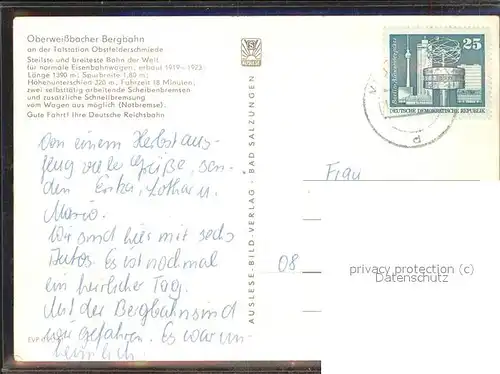 Oberweißbacher Bergbahn
an der Talstation Obstfelderschmiede
Steilste und breiteste Bahn der Welt
für normale Eisenbahnwagen, erbaut 1919–1923
Länge 1390 m; Spurbreite 1,80 m;
Höhenunterschied 320 m, Fahrzeit 18 Minuten;
zwei selbsttätig arbeitende Scheibenbremsen
und zusätzliche Schnellbremsung
vom Wagen aus möglich (Notbremse).
Gute Fahrt! Ihre Deutsche Reichsbahn
Von einem Herbstaus-
flug viele Grüße, sen-
den Erika, Lothar u.
Mario.
Wir sind hier mit sechs
Autos. Es ist nochmal
ein herrlicher Tag.
Mit der Bergbahn sind
wir gefahren. Es war un-
heimlich.
EVP
AUSLESE-BILD-VERLAG · BAD SALZUNGEN
AUSLESE
25
DEUTSCHE DEMOKRATISCHE REPUBLIK
d
Frau
08
privacy protection (c)
Oldthing.de